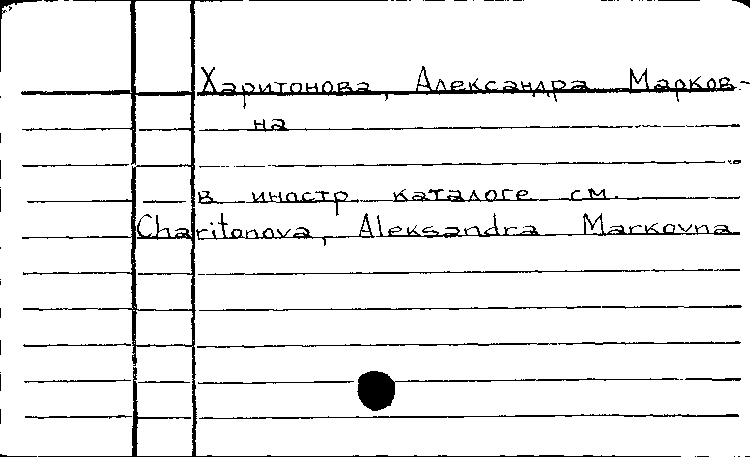 Харитонова, Александра Марков-
на
в иностр каталоге см.
Charitonova, Aleksandra Markovna